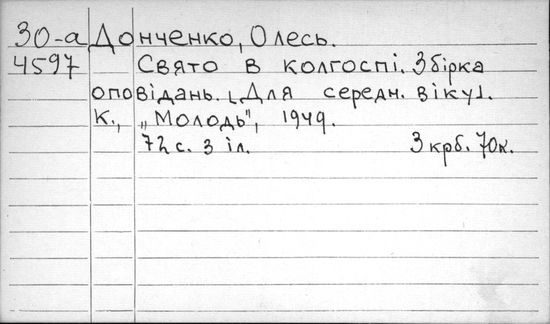 30-а Донченко, Олесь.
4597 Свято в колгоспі. Збірка
оповідань. [Для середн. віку].
К., „Молодь", 1949.
72 с. з іл. 3 крб. 70 к.